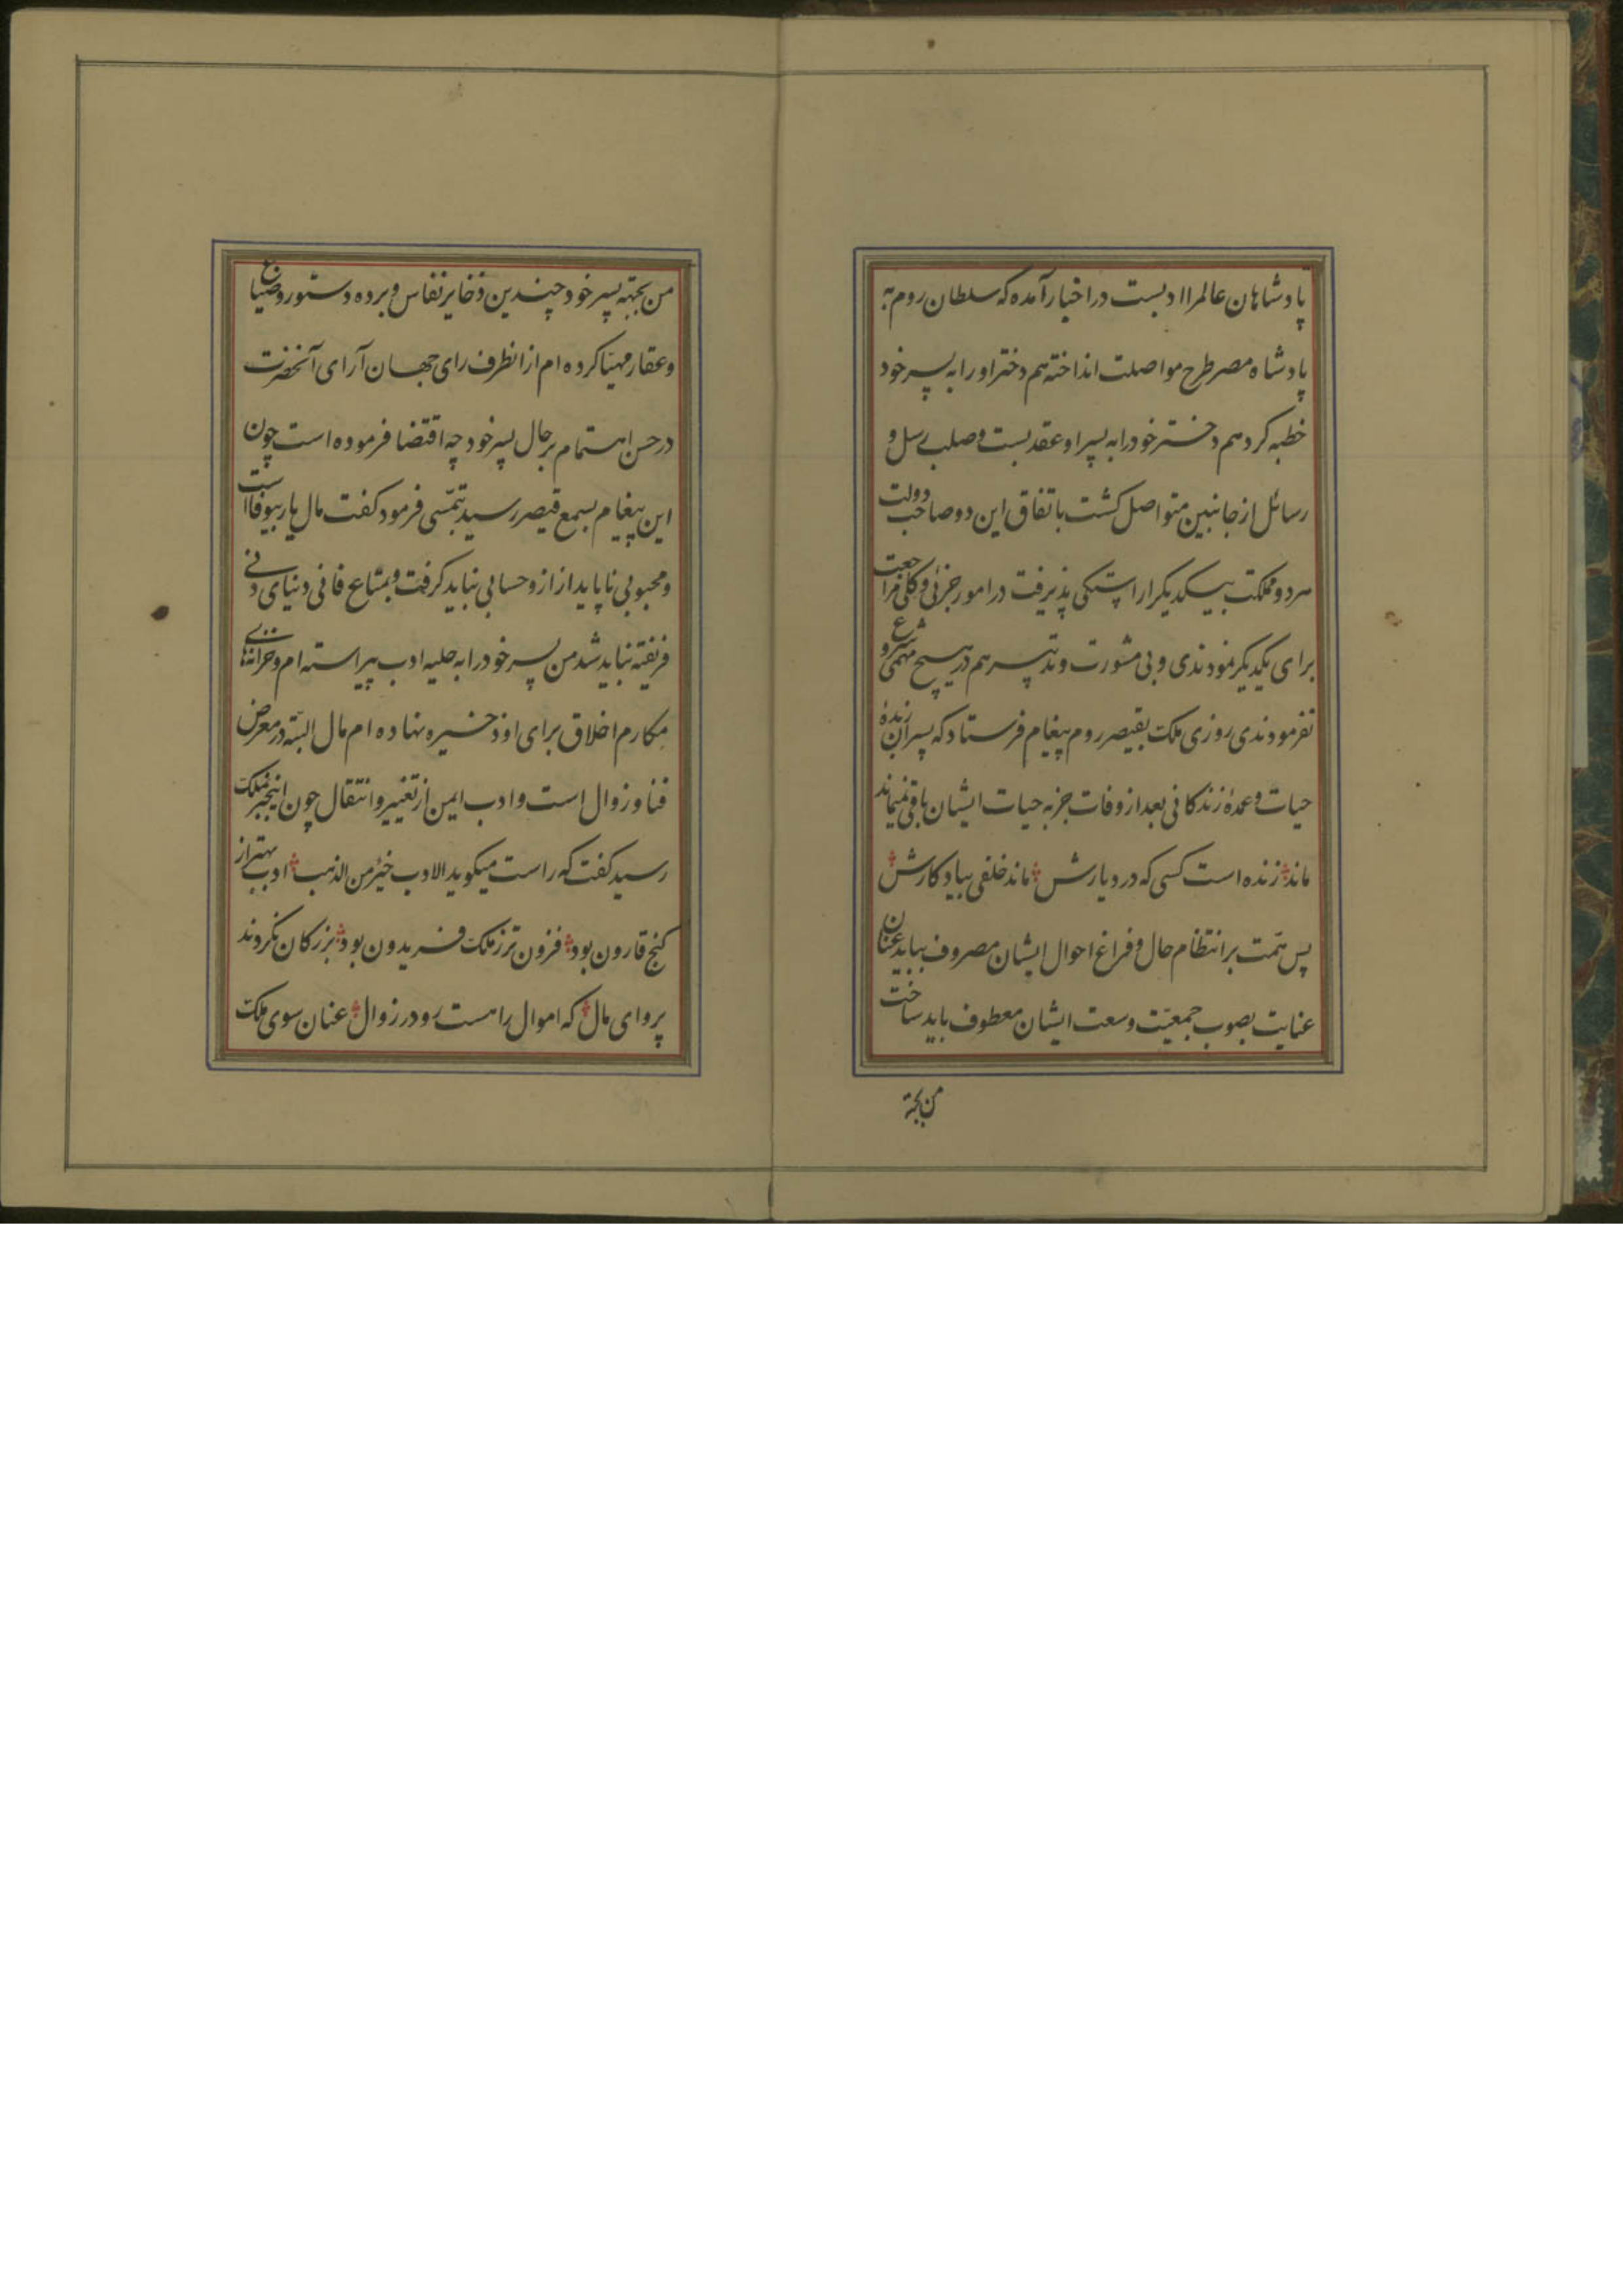 پادشاهان عالمرا ادبست در اخبار آمده که سلطان روم به
پادشاه مصر طرح مواصلت انداخته هم دختر او را به پسر خود
خطبه کرد هم دختر خود را به پسر او عقد بست وصلب رسل و
رسائل از جانبین متواصل کشت باتفاق این دو صاحب دولت
هر دو مملکت بیکدیکر اراستکی پذیرفت در امور جزئی و کلی مراجعت
برای یکدیکر نمودندی و بی مشورت و تدبیر هم در هیچ مهمی شروع
نفرمودندی روزی ملک بقیصر روم پیغام فرستاد که پسران زبدۀ
حیات و عمدۀ زندکانی بعد از وفات جز به حیات ایشان باقی نمیماند
ماند زنده است کسی که در دیارش ماند خلفی بیادکارش
پس همّت بر انتظام حال و فراغ احوال ایشان مصروف بباید عنان
عنایت بصوب جمعیّت وسعت ایشان معطوف باید ساخت
من بجهة
من بجهته پسر خود چندین ذخایر نفاس و برده و ستور و ضیاع
و عقار مهیّا کرده ام از انطرف رای جهان آرای آنحضرت
در حسن اهتمام بر حال پسر خود چه اقتضا فرموده است چون
این پیغام بسمع قیصر رسید تبّسمی فرمود کفت مال یار بیوفا است
و محبوبی ناپایدار از او حسابی نباید کرفت و بمتاع فانی دنیای دنی
فریفته نباید شد من پسر خود را به حلیه ادب پیراسته ام و خزانه‌های
مکارم اخلاق برای او ذخیره نهاده ام مال البتّه در معرض
فنا و زوال است و ادب ایمن از تغییر و انتقال چون اینخبر بملک
رسید کفت که راست میکوید الادب خیرٌ من الذهب ادب بهتر از
کنج قارون بود فزون تر ز ملک فریدون بود بزرکان نکردند
پروای مال که اموال را هست رو در زوال عنان سوی ملک